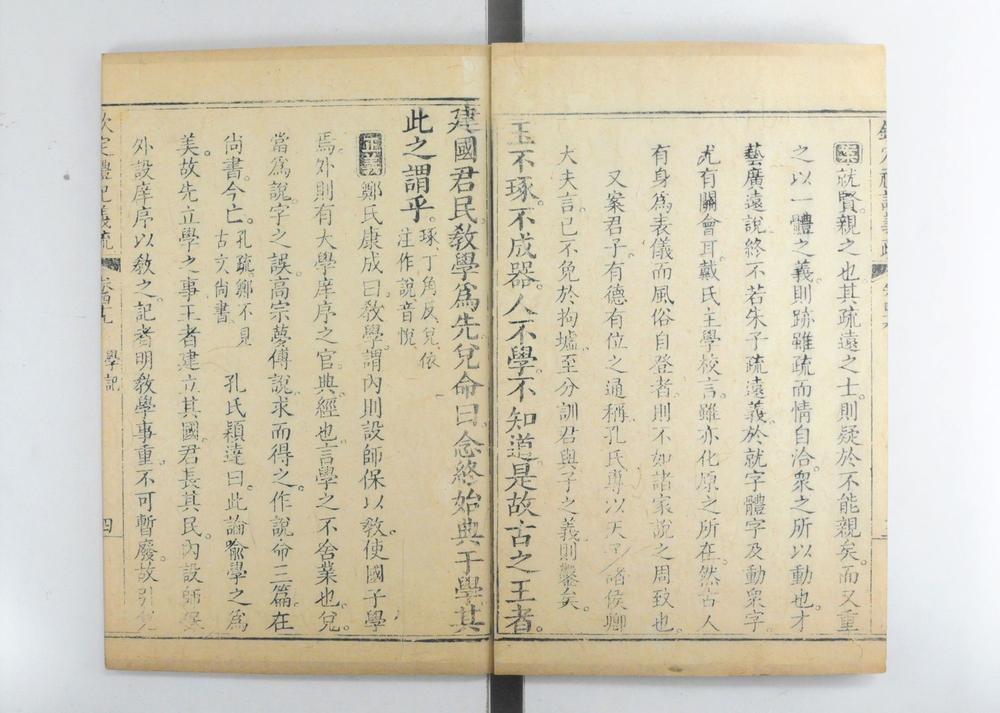 案就賢親之也其疏遠之士則疑於不能親矣而又重
之以一體之義則跡雖疏而情自洽衆之所以動也才
藝廣遠說終不若朱子疏遠義於就字體字及動衆字
尤有關會耳戴氏主學校言雖亦化原之所在然古人
有身爲表儀而風俗自登者則不如諸家說之周致也
又案君子有德有位之通稱孔氏專以天子諸侯卿
大夫言已不免於拘墟至分訓君與子之義則鑿矣
玉不琢不成器人不學不知道是故古之王者
建國君民敎學爲先兌命曰念終始典于學其
此之謂乎琢丁角反兌依
注作說音悅
正義鄭氏康成曰敎學謂內則設師保以敎使國子學
焉外則有大學庠序之官典經也言學之不舍業也兌
當爲說字之誤高宗夢傅說求而得之作說命三篇在
尚書今亡孔疏鄭不見
古文尚書
孔氏穎達曰此論喩學之爲
美故先立學之事王者建立其國君長其民內設師保
外設庠序以敎之記者明敎學事重不可暫廢故引兌
欽定禮記義疏
學記
四